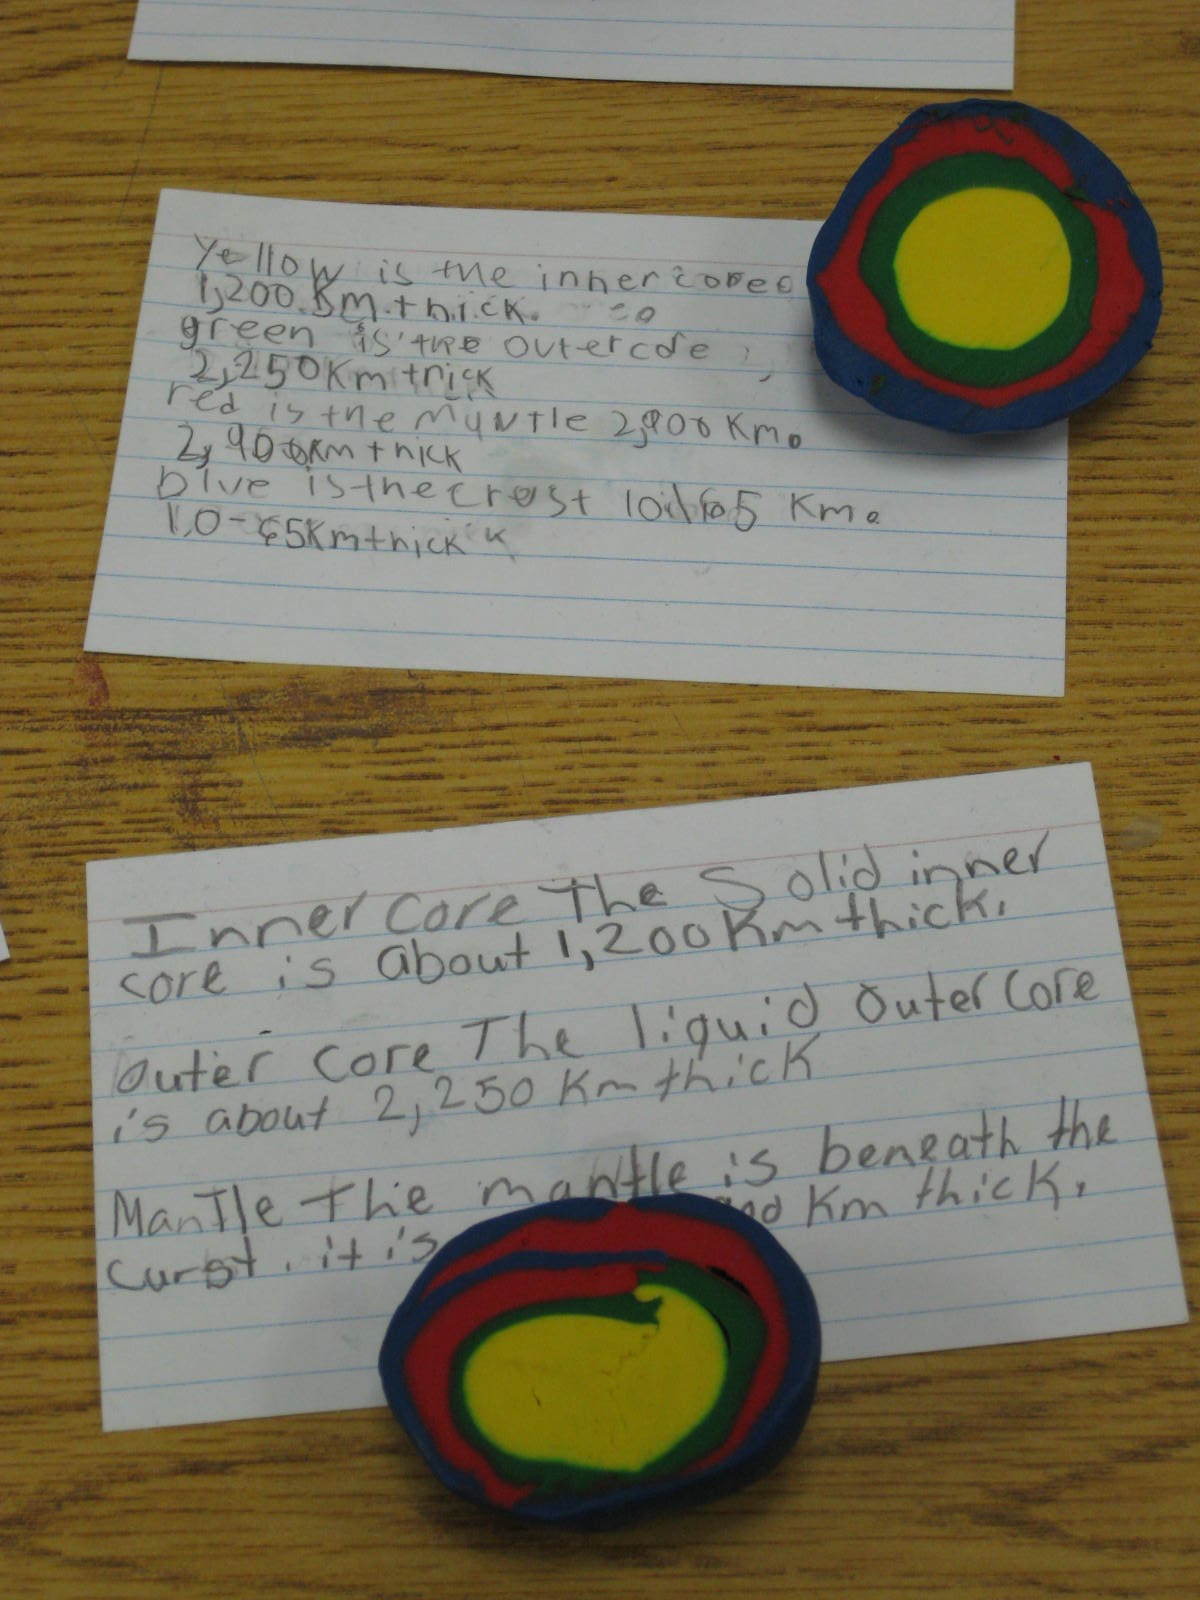 Yellow is the inner core
1,200 Km thick.
green is the outer core
2,250 Km thick
red is the Mantle 2,900 Km.
2,900 Km thick
blue is the crest 10 to 65 Km.
10-65 Km thick
Inner Core The Solid inner
core is about 1,200 Km thick.
outer core The liquid outer Core
is about 2,250 Km thick
Mantle The mantle is beneath the
curst. it is Km thick.